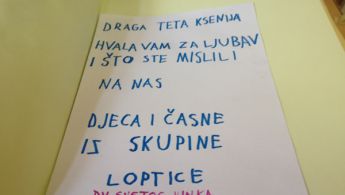 DRAGA TETA KSENIJA
HVALA VAM ZA LJUBAV
I ŠTO STE MISLILI
NA NAS
DJECA I ČASNE
IZ SKUPINE
LOPTICE